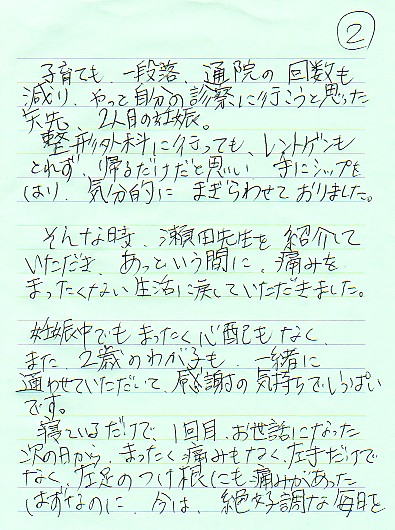 ②
子育ても一段落、通院の回数も
減り、やっと自分の診察に行こうと思った
矢先、2人目の妊娠。
整形外科に行っても、レントゲンも
とれず、帰るだけだと思い、手にシップを
はり、気分的に まぎらわせておりました。
そんな時、瀬田先生を紹介して
いただき、あっという間に、痛みを
まったくない生活に戻していただきました。
妊娠中でもまったく心配もなく、
また、2歳のわが子も、一緒に
通わせていただいて、感謝の気持ちでいっぱい
です。
寝ているだけで、1回目、お世話になった
次の日から、まったく痛みもなく、左手だけで
なく、左足のつけ根にも痛みがあった
はずなのに、今は、絶好調な毎日を